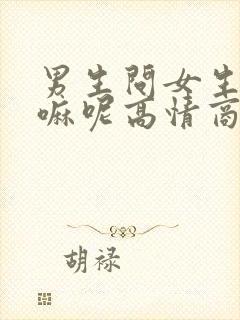 男生問女生
嘛呢高情商
胡禄